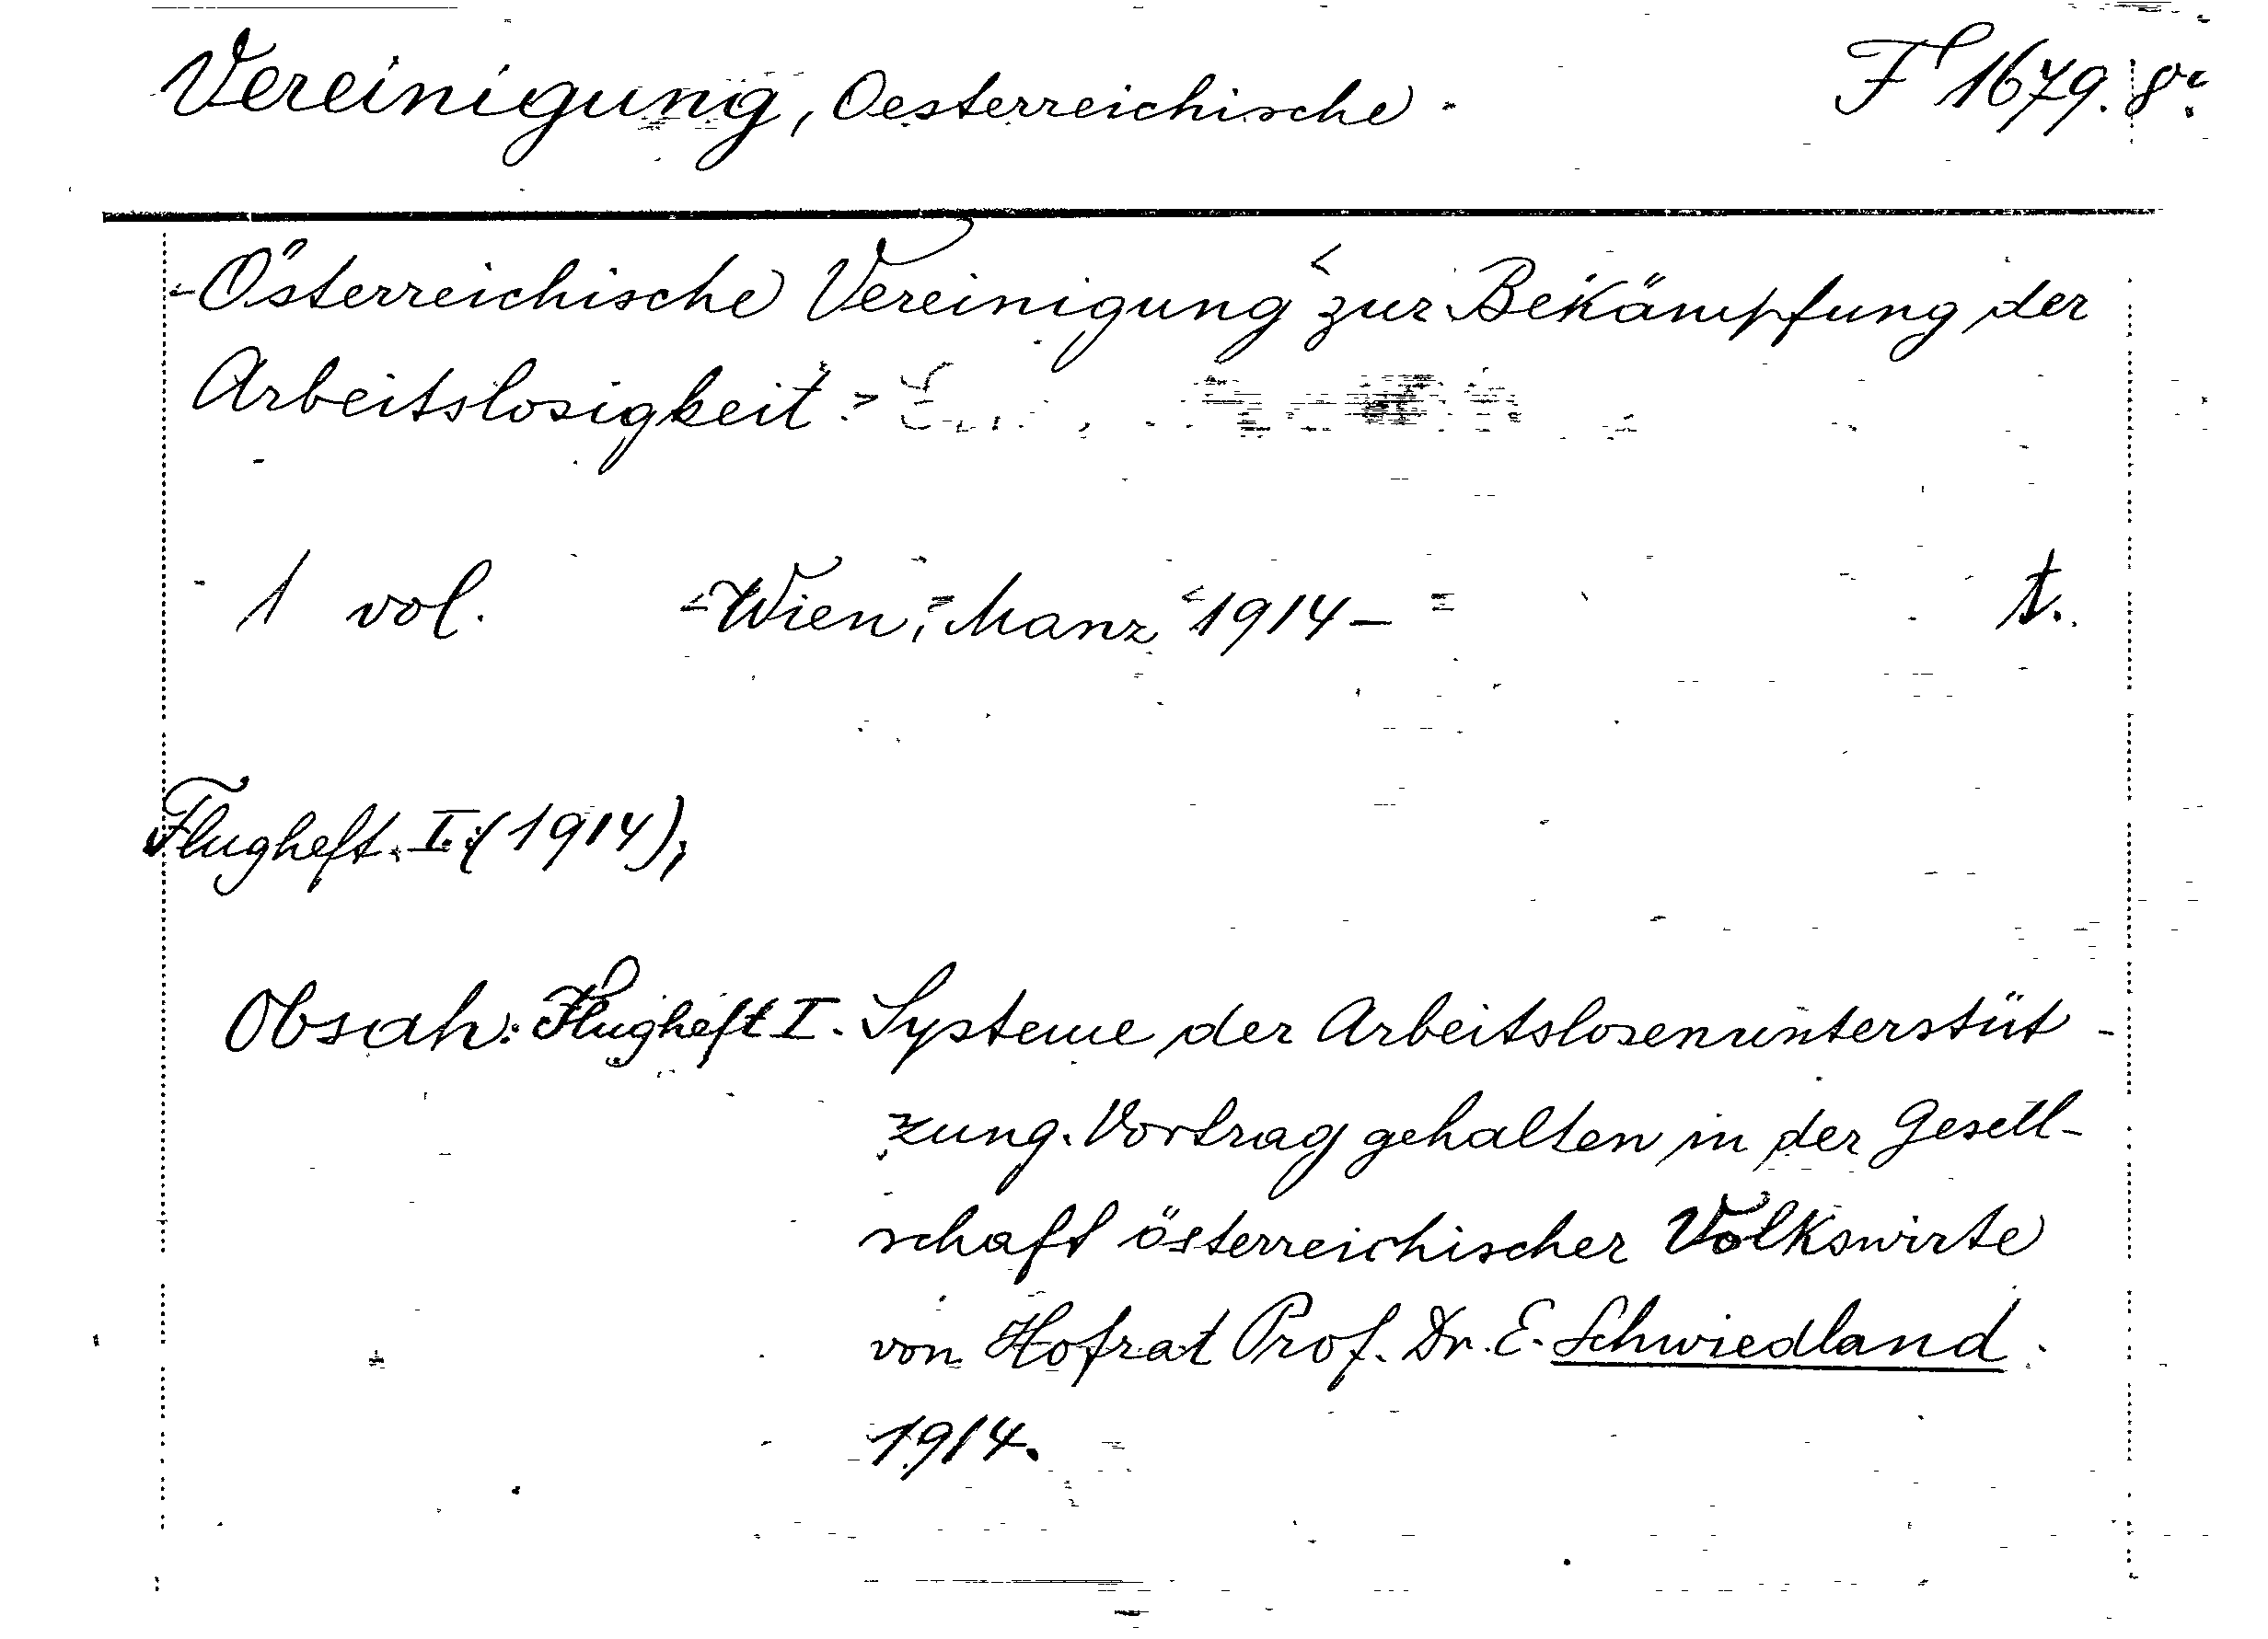 Vereinigung, Oesterreichische F 1679. 8°.
Österreichische Vereinigung zur Bekämpfung der
Arbeitslosigkeit.
1 vol. Wien, Manz 1914- t.
Flugheft. I. (1914),
Obsah: Flugheft I. Systeme der Arbeitslosenunterstüt-
zung. Vortrag gehalten in der Gesell-
schaft österreichischer Volkswirte
von Hofrat Prof. Dr. E. Schwiedland.
1914.